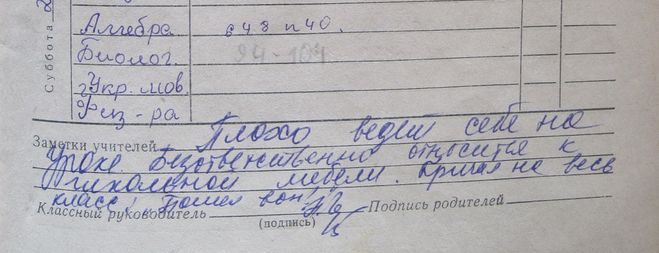 Суббота
Алгебра § 48 п 40.
Биолог. 94-104
Укр. мов.
Физ-ра
Заметки учителей Плохо ведет себе на
уроке. Безответственно относится к
школьной мебели. Кричал на весь
класс: Пошел вон!
Классный руководитель Подпись родителей
(подпись)